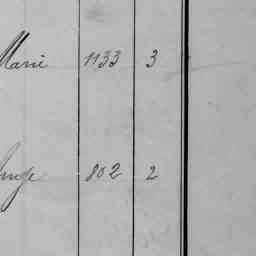 Marie 1133 3
802 2